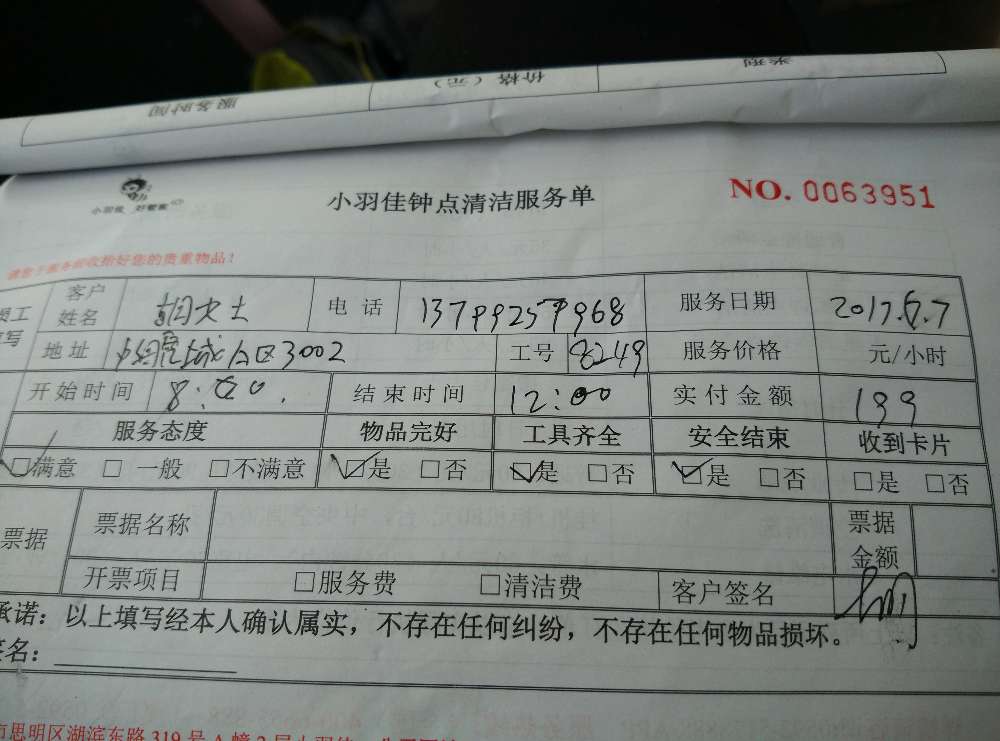 类型
价格(元)
服务时间
小羽佳 好管家
小羽佳钟点清洁服务单
NO. 0063951
请您于服务前收拾好您的贵重物品!
客户姓名 胡女士 电话 13799257968 服务日期 2017.6.7
地址 城A区3002 工号 8249 服务价格 元/小时
开始时间 8:00. 结束时间 12:00 实付金额 199
服务态度 物品完好 工具齐全 安全结束 收到卡片
☑满意 □一般 □不满意 ☑是 □否 ☑是 □否 ☑是 □否 □是 □否
票据 票据名称 票据金额
开票项目 □服务费 □清洁费 客户签名
承诺:以上填写经本人确认属实,不存在任何纠纷,不存在任何物品损坏。
签名:
市思明区湖滨东路319号A幢2层